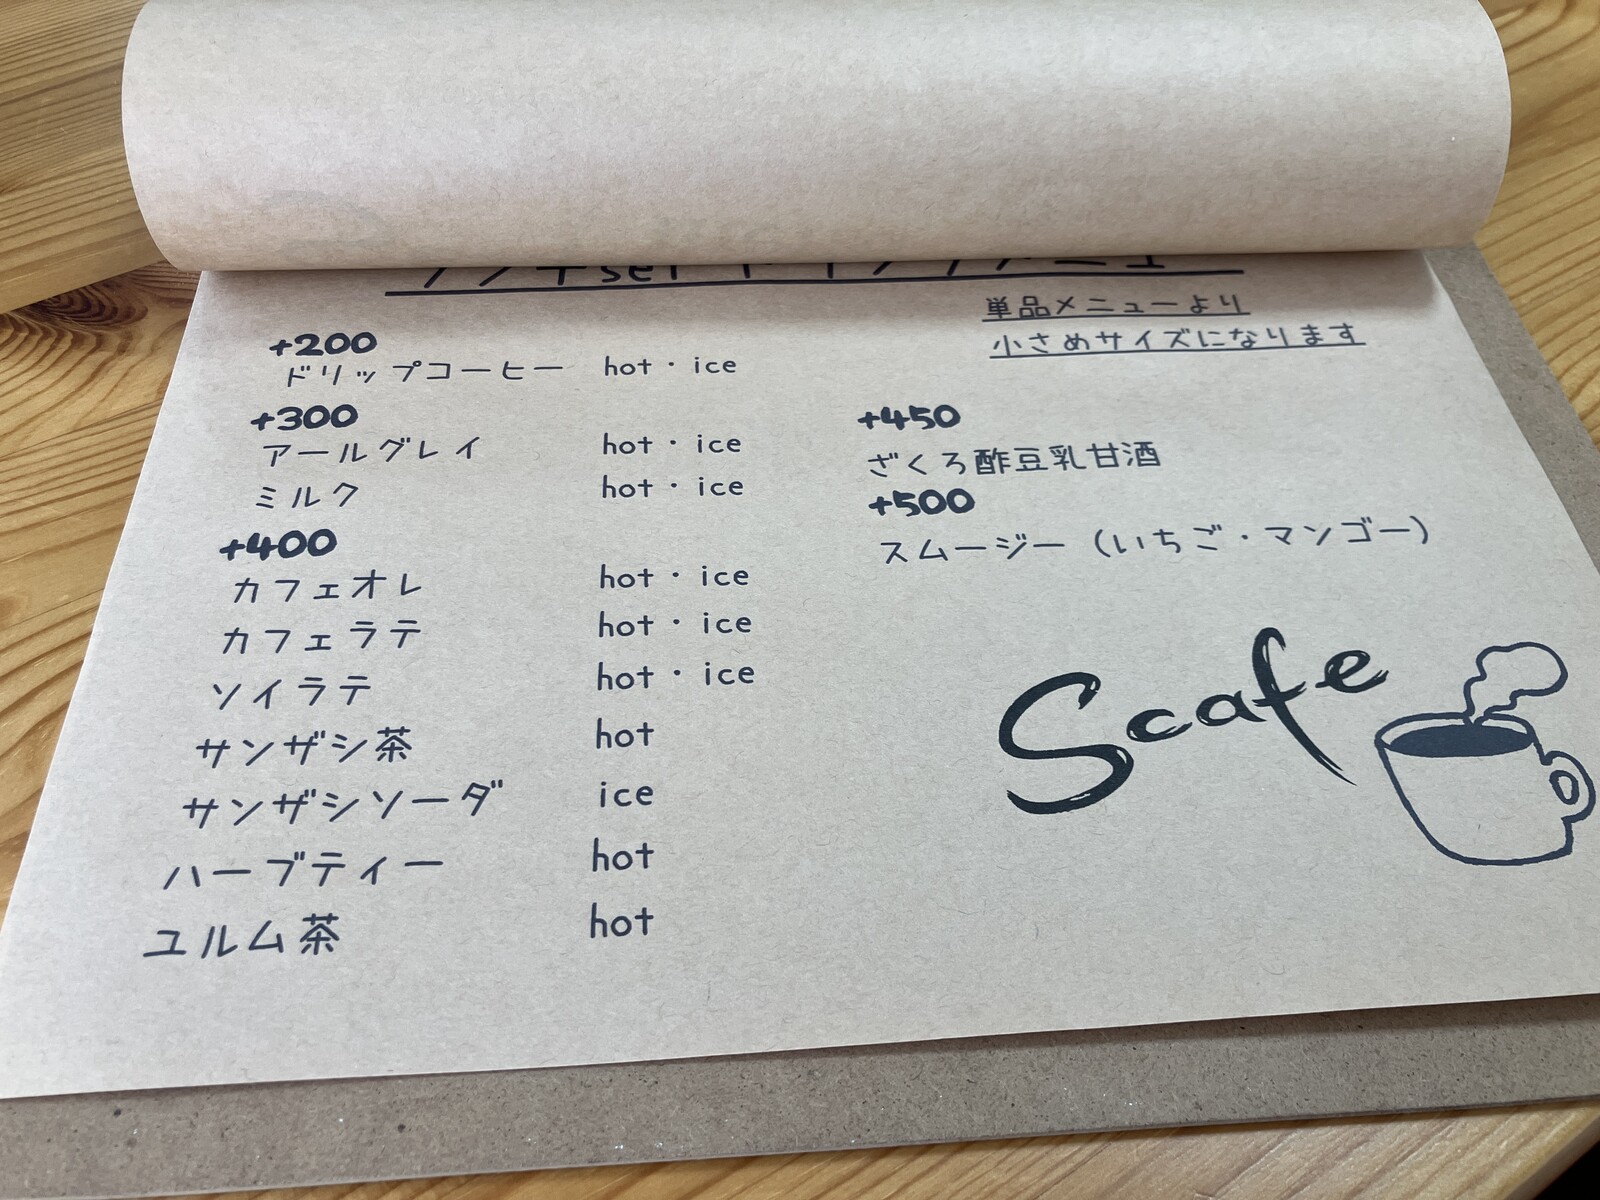 ランチset ドリンクメニュー
単品メニューより
小さめサイズになります
+200
ドリップコーヒー hot・ice
+300
アールグレイ hot・ice
ミルク hot・ice
+400
カフェオレ hot・ice
カフェラテ hot・ice
ソイラテ hot・ice
サンザシ茶 hot
サンザシソーダ ice
ハーブティー hot
ユルム茶 hot
+450
ざくろ酢豆乳甘酒
+500
スムージー（いちご・マンゴー）
Scafe